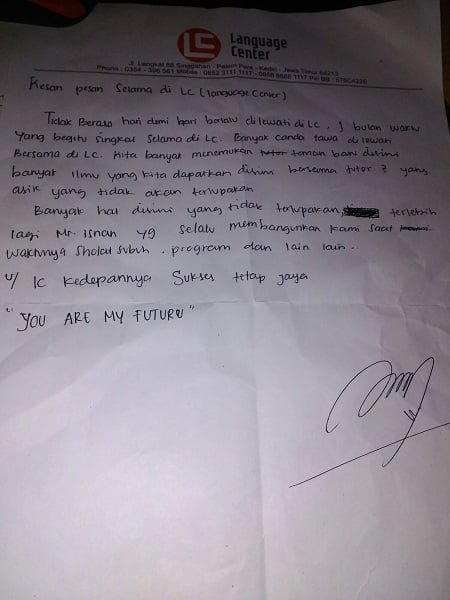 LC
Language
Center
Jl. Langkat 88 Singgahan - Pelem Pare - Kediri - Jawa Timur 64213
Phone : 0354 - 396 561 Mobile : 0852 3111 1117 - 0856 8666 1117 Pin BB : 576C4226
Kesan pesan Selama di LC (Language Center)
Tidak Berasa hari demi hari berlalu dilewati di LC, 1 bulan waktu
Yang begitu singkat selama di LC. Banyak canda tawa di lewati
Bersama di LC. Kita banyak menemukan tutor taman baru disini
banyak Ilmu yang kita dapatkan disini bersama tutor 2 yang
asik yang tidak akan terlupakan
Banyak hal disini yang tidak terlupakan, terlebih
lagi Mr. Isnan yg selalu membangunkan kami saat
waktunya sholat subuh, program dan lain lain..
u/ lc kedepannya sukses tetap jaya
"YOU ARE MY FUTURE"